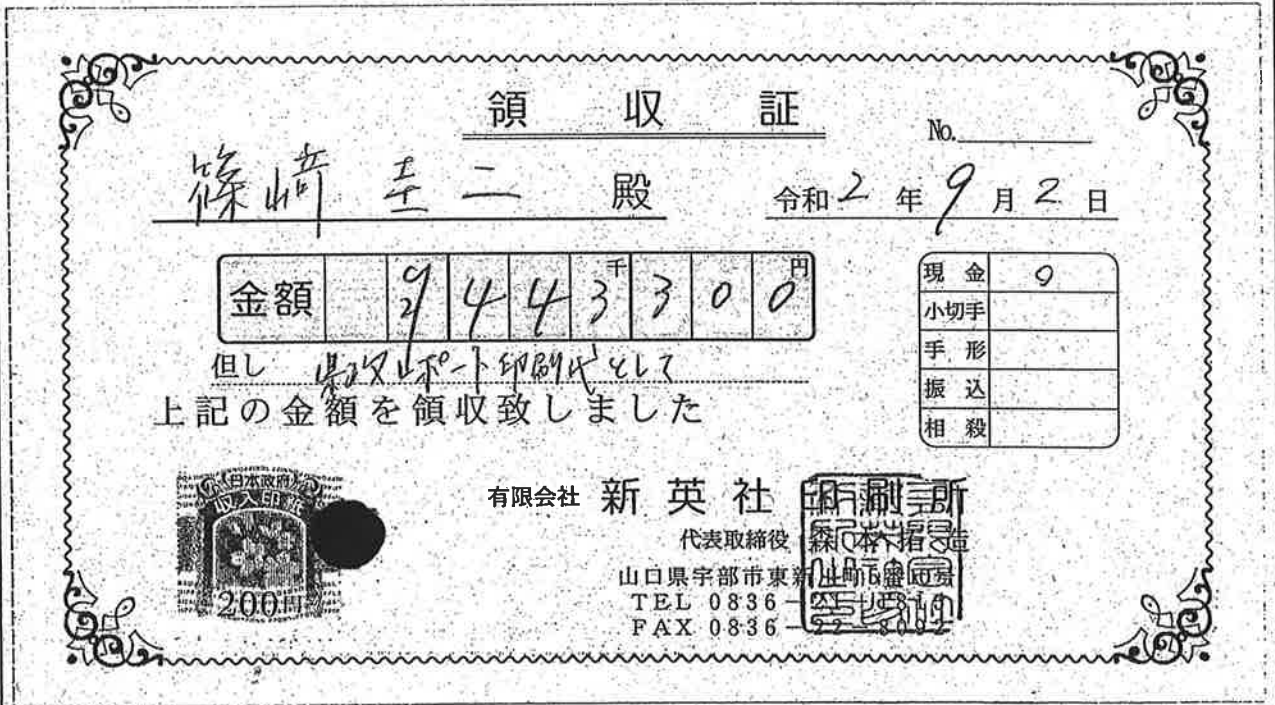 領収証
No.
篠﨑 圭二 殿
令和2年9月2日
金額 ¥443千300円
但し 県政レポート印刷代として
上記の金額を領収致しました
現金 ○
小切手
手形
振込
相殺
日本政府
収入印紙
200円
有限会社 新英社印刷所
代表取締役 森本拓造
山口県宇部市東新川町
TEL 0836-21-
FAX 0836-22-8092